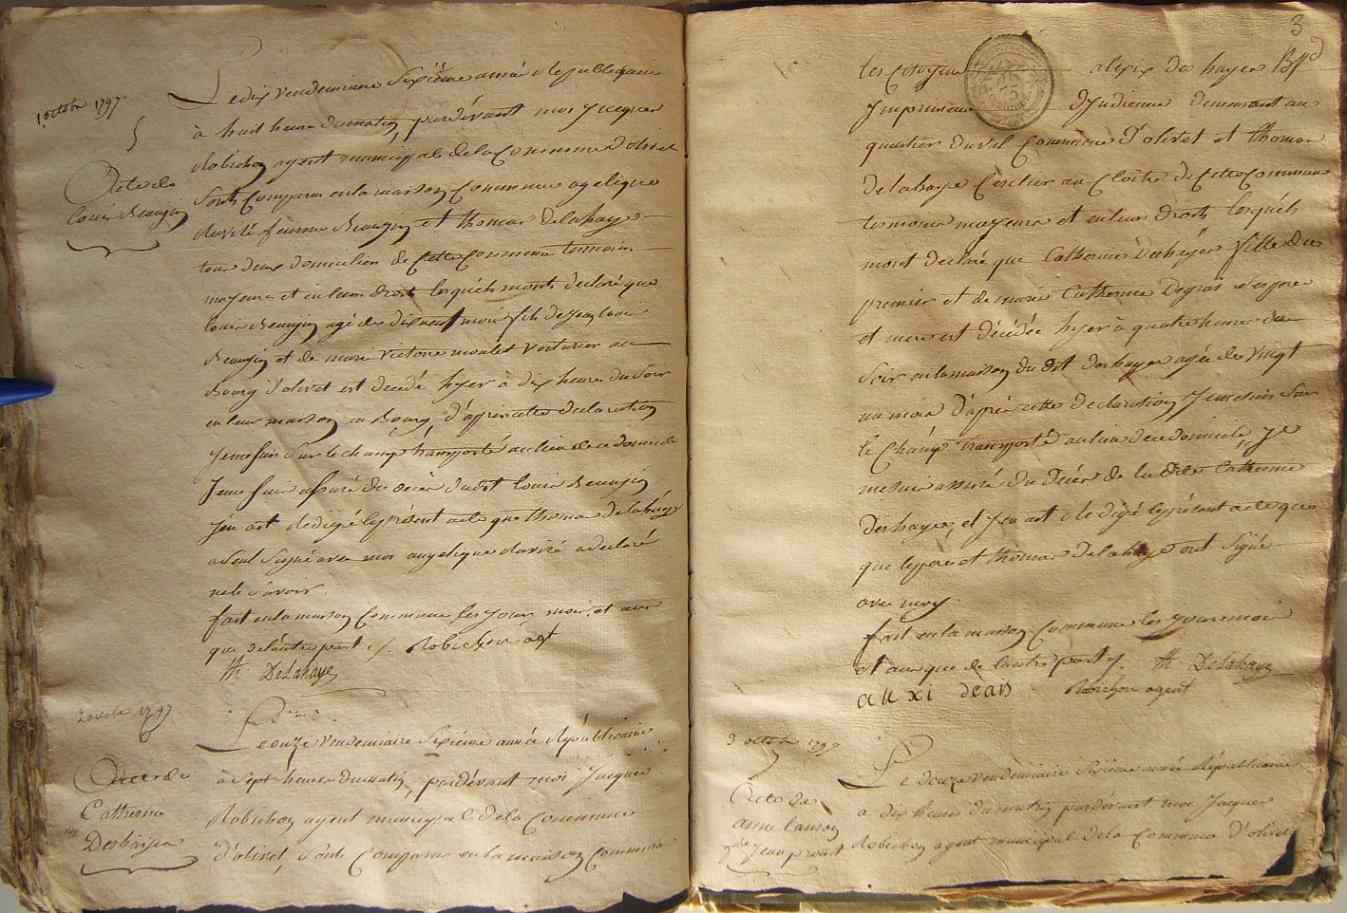 1 octobre 1797
Décès de
Louis Beaugin
Le dix vendemiaire Sixième année Republiquaine
à huit heure du matin, pardevant moi Jacques
Robichon agent municipal de la Commune d'olivet
Sont Comparu en la maison Commune agelique
femme Beaugin et thomas Delahaye
tous deux domicilier de Cette Commune temoins
majeurs et en leurs droits lesquels mont declaré que
louis Beaugin agé de mois fils de Jean louis
Beaugin et de marie victoire voiturier au
Bourg d'olivet est decedé hyer à dix heure du Soir
en leur maison au Bourg, d'apprès cette declaration
Je me suis Sur le champ transporté au lieu de ce domicile
Je me suis assuré du décès dudit louis Beaugin
J'en ait redigé le présent acte que thomas Delahaye
a Seul Signé avec moi angelique a declaré
ne le Savoir.
fait en la maison Commune les Jour mois et an
que de lautre part Robichon agt
th Delahaye
2 octobre 1797
Décès de
Catherine
Deshaÿes
Le onze Vendemiaire Sixième année Républicaine
à Sept heures du matin, pardevant moi Jacques
Robichon agent municipal de la Commune
d'olivet, Sont Comparu en la maison Commune
3
les Citoyens alexis des hayes
Imprimeur d'Indienne demeurant au
quartier du Commune d'olivet et thomas
Delahaye au Cloitre de Cette Commune
temoins majeurs et en leurs droits lesquels
mont declaré que Catherine Deshayes fille du
premier et de marie Catherine Degrois
et mere est décédée hyer à quatre heure du
Soir en la maison du dit Deshayes agée de vingt
un mois d'après cette declaration Je me suis Sur
le Champ transporté au lieu de ce domicile, Je
me suis assuré du Décès de la dite Catherine
Deshayes, et J'en ait redigé le présent acte que
que le pere et thomas Delahaye ont Signé
avec moy.
fait en la maison Commune les jour mois
et an que de lautre part. th Delahaye
allxi deais Robichon agent
3 octobre 1797
Acte de
anne lanson
Jean
Le douze vendemiaire Sixième année Républicaine
a dix heures du matin pardevant moi Jacques
Robichon agent municipal de la Commune d'olivet